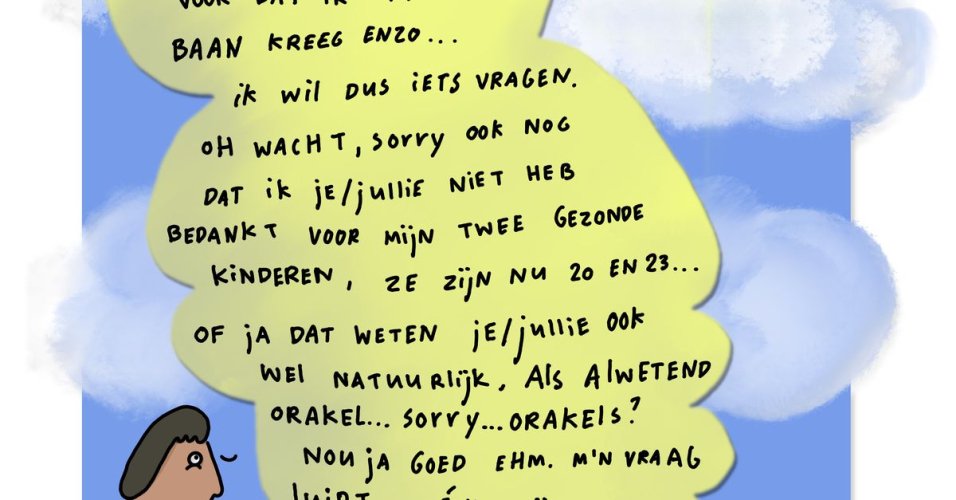 VOOR DAT IK
BAAN KREEG ENZO...
ik wil DUS iETS VRAGEN.
OH WACHT, sorry ook NOG
DAT ik je/jullie NIET HEB
BEDANKT VOOR MijN TWEE GEZONDE
KINDEREN, ZE ZijN NU 20 EN 23...
OF jA DAT WETEN jE/jullie OOK
WEL NATUURLijK. Als AlWETEND
ORAKEL... sorry...ORAKELS?
NOU jA GOED EHM. M'N VRAAG
luidt